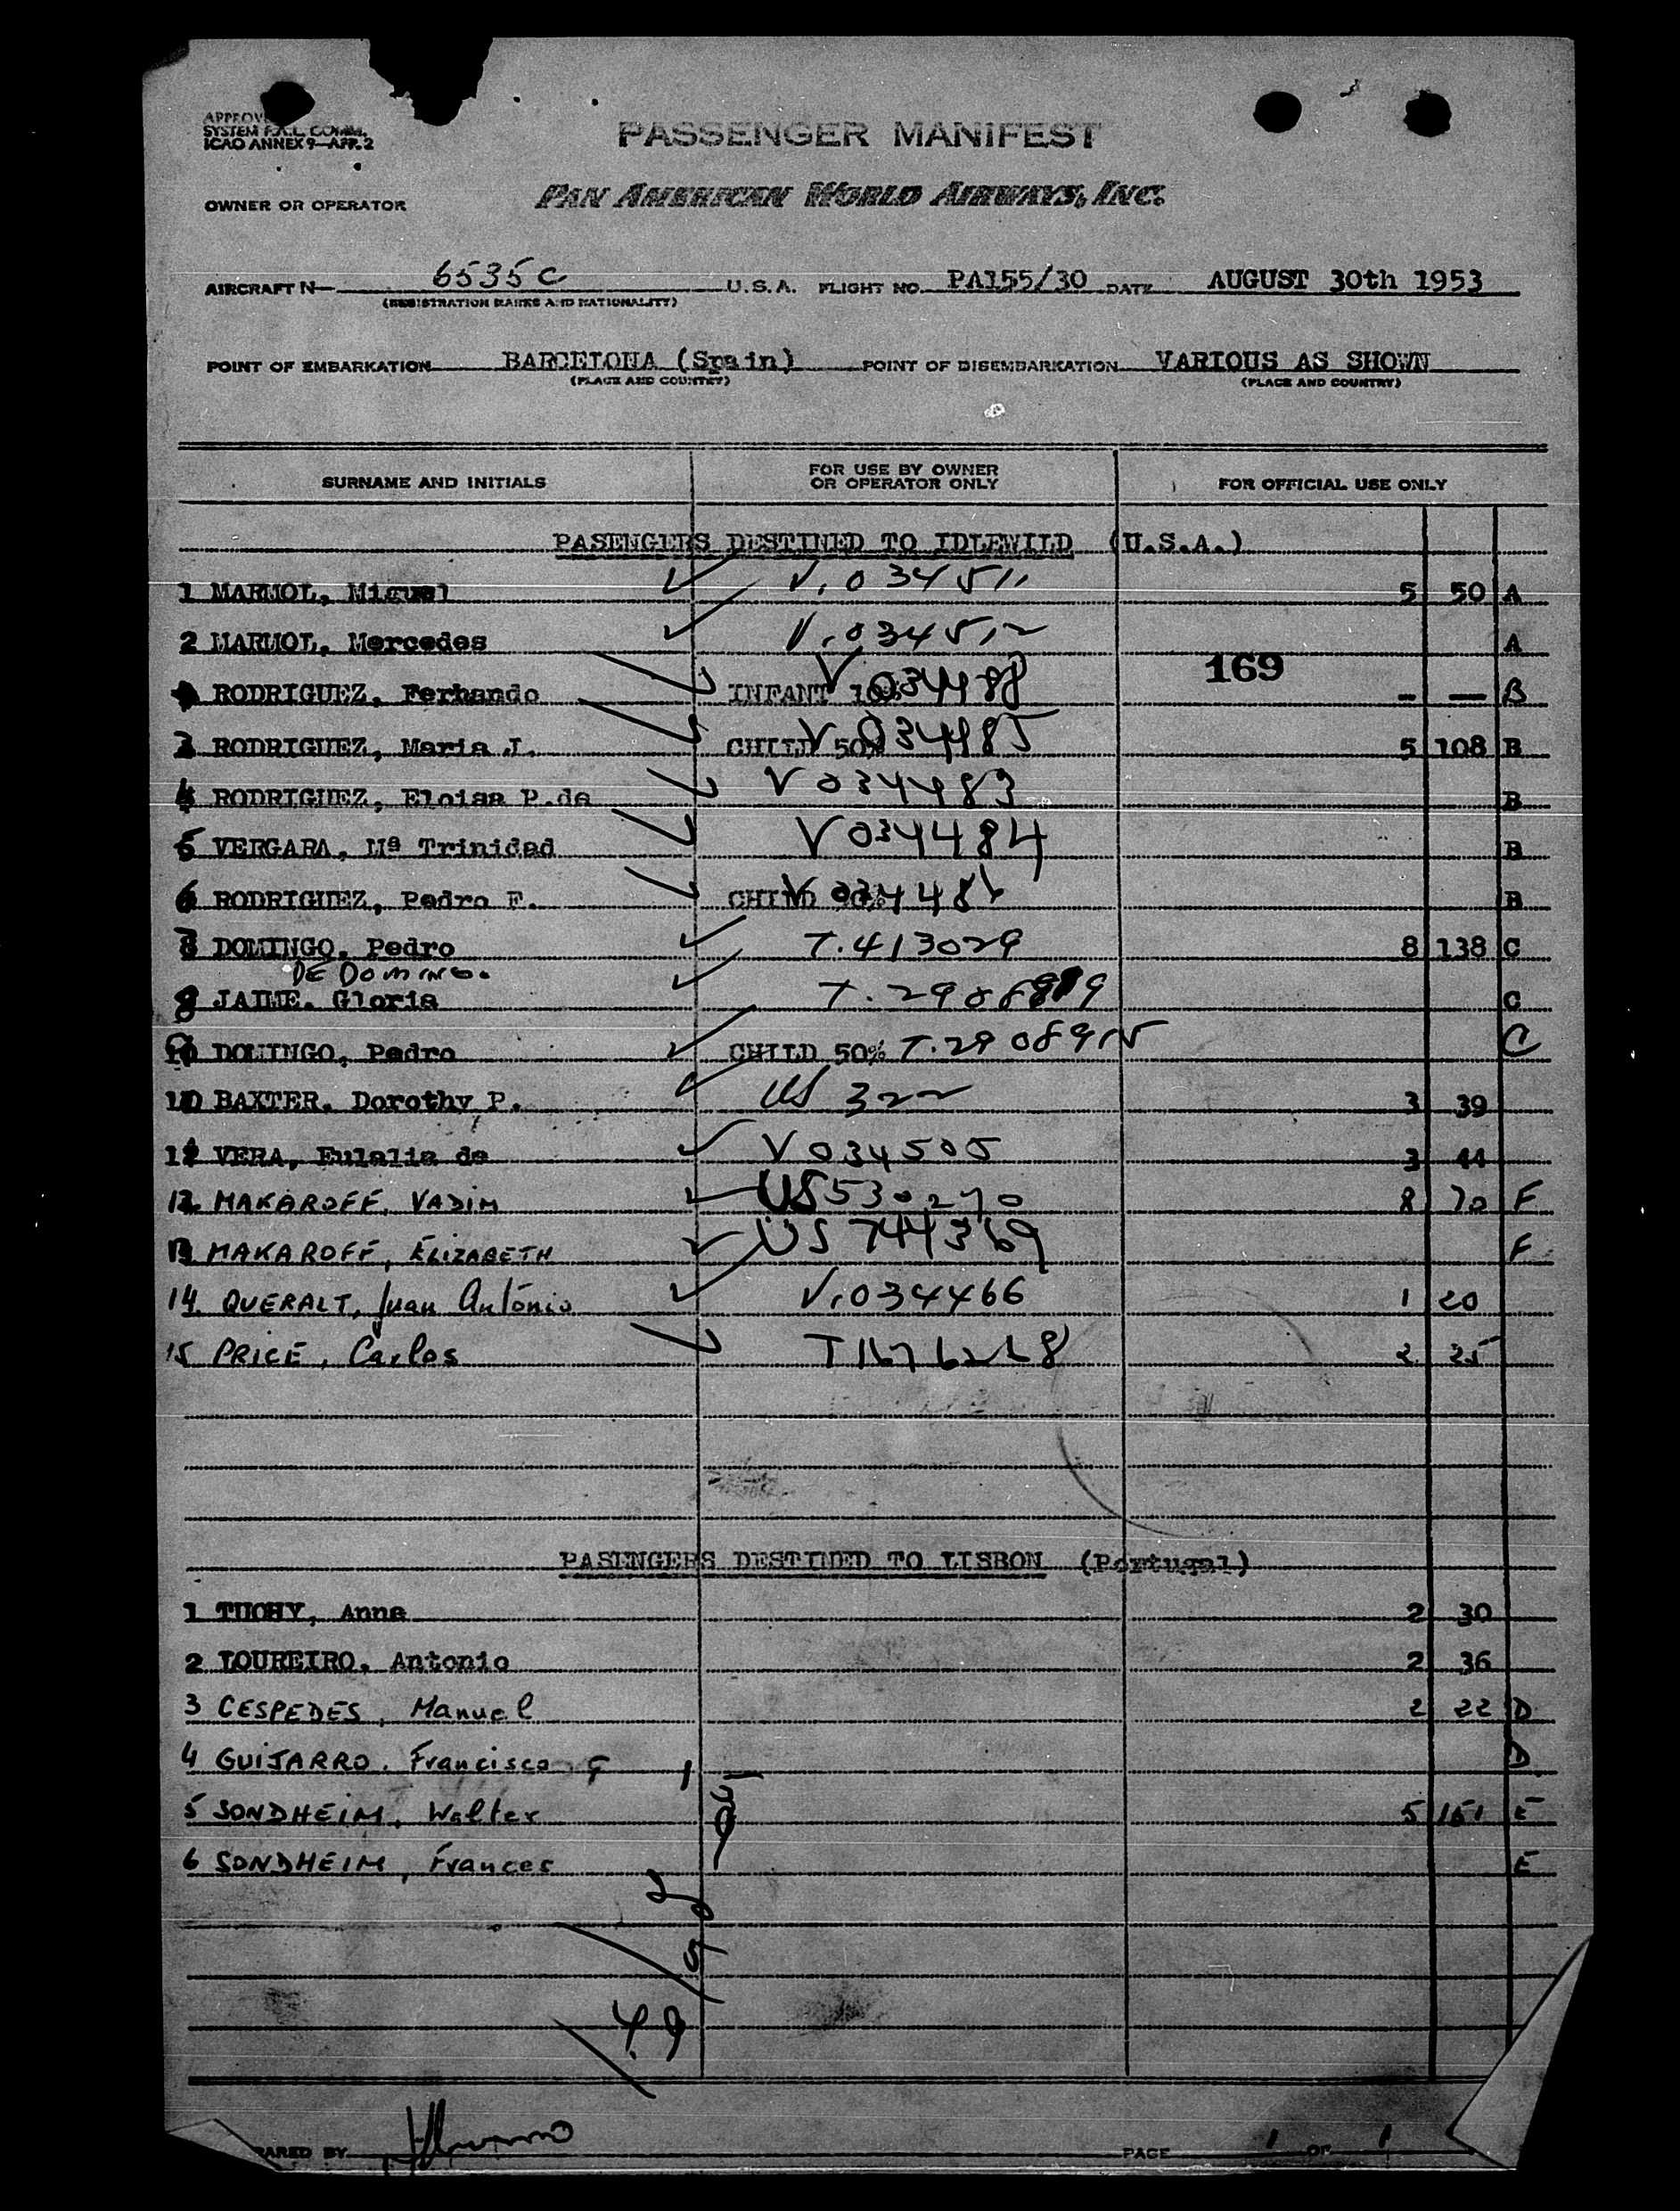 APPROVE
SYSTEM F.A.L. COMM.
ICAO ANNEX 9—APP. 2
PASSENGER MANIFEST
OWNER OR OPERATOR PAN AMERICAN WORLD AIRWAYS, INC.
AIRCRAFT N— 6535C U.S.A. FLIGHT NO. PA155/30 DATE AUGUST 30th 1953
(REGISTRATION MARKS AND NATIONALITY)
POINT OF EMBARKATION BARCELONA (Spain) POINT OF DISEMBARKATION VARIOUS AS SHOWN
(PLACE AND COUNTRY) (PLACE AND COUNTRY)
SURNAME AND INITIALS FOR USE BY OWNER OR OPERATOR ONLY FOR OFFICIAL USE ONLY
PASENGERS DESTINED TO IDLEWILD (U.S.A.)
1 MARMOL, Miguel V.034511 5 50 A
2 MARMOL, Mercedes V.034512 A
169
RODRIGUEZ, Fernando INFANT 10% V 034488 - — B
3 RODRIGUEZ, Maria J. CHILD 50% V 034485 5 108 B
4 RODRIGUEZ, Eloisa P.de V 034483 B
5 VERGARA, Mª Trinidad V 034484 B
6 RODRIGUEZ, Pedro F. CHILD 50% V 034486 B
7 DOMINGO, Pedro T.413029 8 138 C
DE DOMINGO.
8 JAIME, Gloria C
9 DOMINGO, Pedro CHILD 50% C
10 BAXTER, Dorothy P. US 322 3 39
11 VERA, Eulalia de V 034505 3 44
12. MAKAROFF, VADIM US530270 8 70 F
13. MAKAROFF, ELIZABETH US 744369 F
14. QUERALT, Juan António V.034466 1 20
15 PRICE, Carlos 2 25
PASENGERS DESTINED TO LISBON (Portugal)
1 TUOHY, Anna 2 30
2 LOUREIRO, Antonio 2 36
3 CESPEDES, Manuel 2 22 D
4 GUIJARRO, Francisco G D
5 SONDHEIM, Walter 5 151 E
6 SONDHEIM, Frances E
ARED BY PAGE 1 OF 1